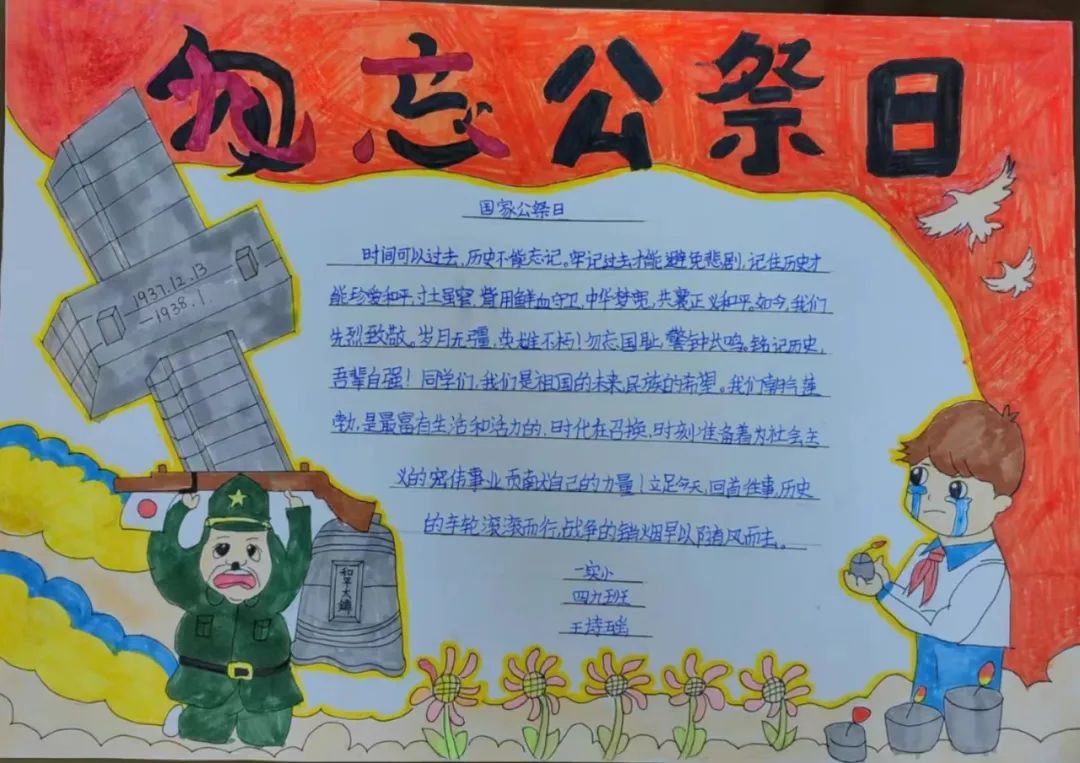 勿忘公祭日
1937.12.13
—1938.1.
国家公祭日
时间可以过去,历史不能忘记。牢记过去才能避免悲剧,记住历史才
能珍爱和平,寸土星官,皆用鲜血守卫,中华梦宽,共襄正义和平。如今,我们
先烈致敬。岁月无疆,英雄不朽!勿忘国耻,警钟长鸣。铭记历史,
吾辈自强!同学们,我们是祖国的未来,民族的希望。我们朝气蓬
勃,是最富有生活和活力的,时代在召换,时刻准备着为社会主
义的宏伟事业,贡献出自己的力量!立足今天,回首往事,历史
的车轮滚滚而行,战争的销烟早以随风而去。
和平大鐘
一实小
四九班
王诗瑶